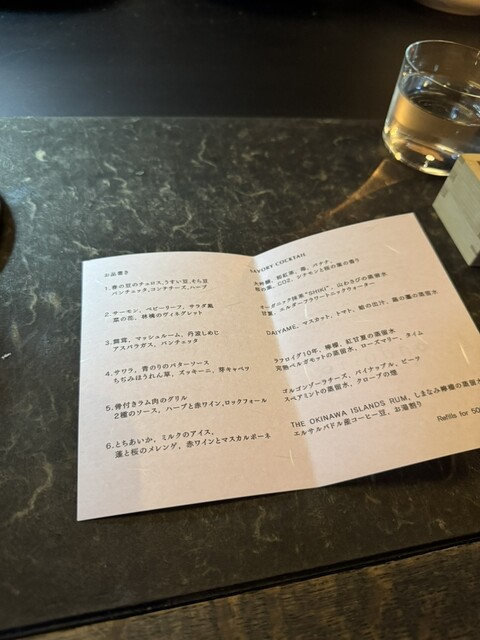 お品書き
1.春の豆のチュロス,うすい豆,そら豆
パンチェッタ,コンテチーズ,ハーブ
2.サーモン、ベビーリーフ、サラダ蕪
菜の花、林檎のヴィネグレット
3.鶉、マッシュルーム、丹波しめじ
アスパラガス、パンチェッタ
4.サワラ、青のりのバターソース
ちぢみほうれん草、ズッキーニ、芽キャベツ
5.骨付きラム肉のグリル
2種のソース、ハーブと赤ワイン,ロックフォール
6.とちあいか、ミルクのアイス、
蓬と桜のメレンゲ、赤ワインとマスカルポーネ
SAVORY COCKTAIL
大吟醸、和紅茶、苺、バナナ、
CO2、シナモンと桜の葉の香り
オーガニック抹茶"SHIKI"、山わさびの蒸留水
甘夏、エルダーフラワートニックウォーター
DAIYAME、マスカット、トマト、蛤の出汁、蕗の薹の蒸留水
ラフロイグ10年、檸檬、紅甘夏の蒸留水
完熟ベルガモットの蒸留水、ローズマリー、タイム
ゴルゴンゾーラチーズ、パイナップル、ビーツ
スペアミントの蒸留水、クローブの燻
THE OKINAWA ISLANDS RUM、しまなみ檸檬の蒸留水
エルサルバドル産コーヒー豆、お湯割り
Refills for 50